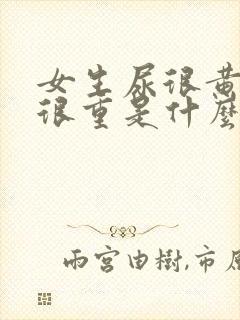 女生尿很黄
很重是什麼
雨宮由樹,市原